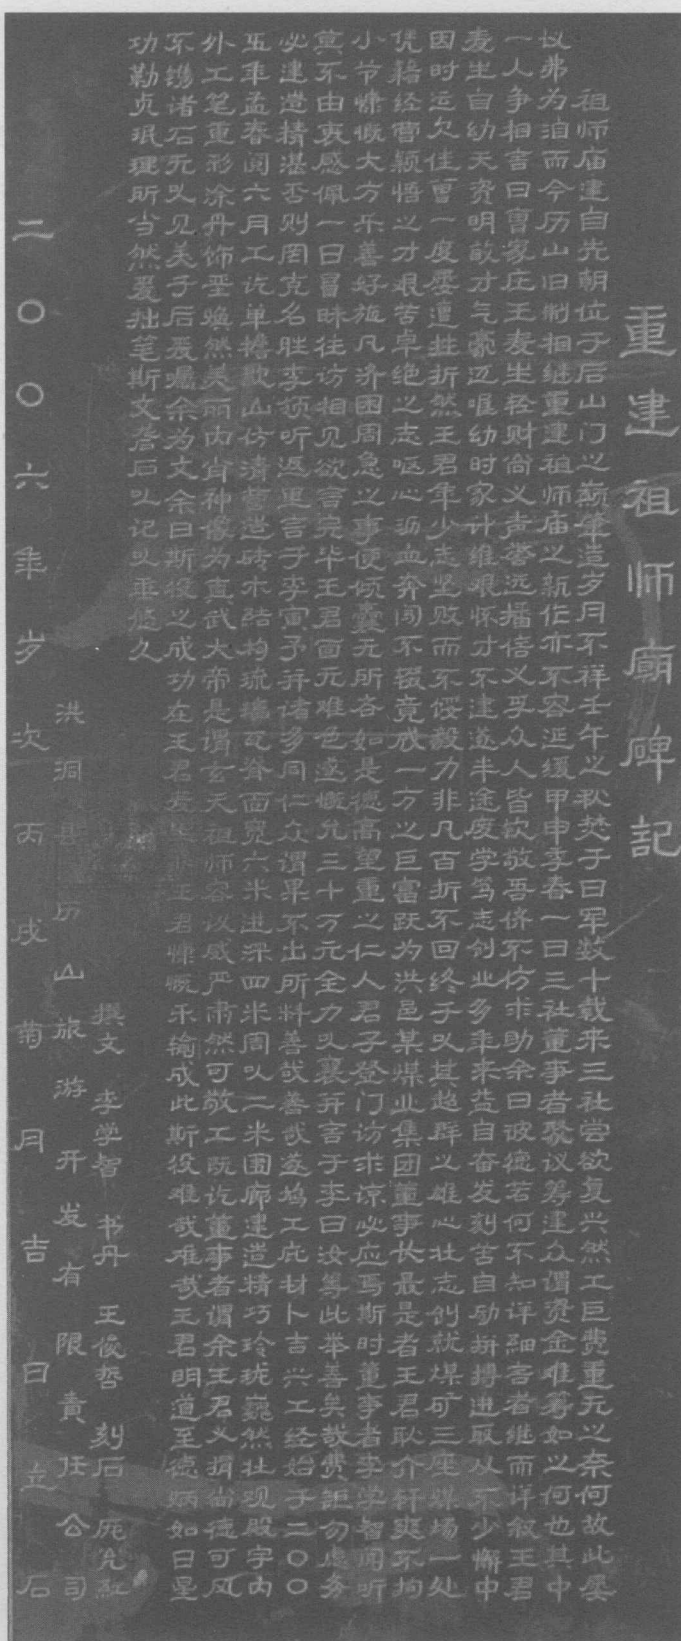 重建祖师廟碑記
祖师庙建自先朝位于后山门之巅肇造岁月不祥壬午之秋焚于日军数十载来三社尝欲复兴然工巨费重无之奈何故此屡
议弗为洎而今历山旧制相继重建祖师庙之新作亦不容迟缓甲申季春一日三社董事者聚议筹建众谓资金难筹如之何也其中
一人争相言曰曹家庄王麦生轻财尚义声誉远播信义孚众人皆钦敬吾侪不仿求助余曰彼德若何不知详细言者继而详叙王君
麦生自幼天资明敏才气豪迈唯幼时家计维艰怀才不逮遂半途废学笃志创业多年来益自奋发刻苦自励拼搏进取从不少懈中
因时运欠佳曾一度屡遭挫折然王君年少志坚败而不馁毅力非凡百折不回终于以其超群之雄心壮志创就煤矿三座煤场一处
凭籍经曹颖悟之才艰苦卓绝之志呕心沥血奔闯不辍竟成一方之巨富跃为洪邑某煤业集团董事长最是者王君耿介轩爽不拘
小节慷慨大方乐善好施凡济困周急之事便倾囊无所吝如是德高望重之仁人君子登门访求谅必应焉斯时董事者李学智闻听
莫不由衷感佩一日冒昧往访相见欲言完毕王君面无难色遂慨允三十万元全力以襄并言于李曰汝等此举善矣哉费钜勿虑务
必建造精湛否则罔克名胜李颔听返里言于李寅予并诸多同仁众谓果不出所料善哉善哉遂鸠工庀材卜吉兴工经始于二〇〇
五年孟春阅六月工讫单檐歇山仿清营造砖木结构琉璃瓦脊面宽六米进深四米周以二米围廊建造精巧玲珑巍然壮观殿宇内
外工笔重彩涂丹饰垩焕然美丽内肖神像为真武大帝是谓玄天祖师容仪威严肃然可敬工既讫董事者谓余王君义捐尚德可风
不镌诸石无以见美于后爰嘱余为文余曰斯役之成功在王君麦生非王君慷慨乐输成此斯役难哉难哉王君明道至德炳如日星
功勒贞珉理所当然爰拙笔斯文泐石以记以垂悠久
撰文 李学智 书丹 王俊哲 刻石
洪洞县历山旅游开发有限责任公司
二〇〇六年岁次丙戌菊月吉日立石